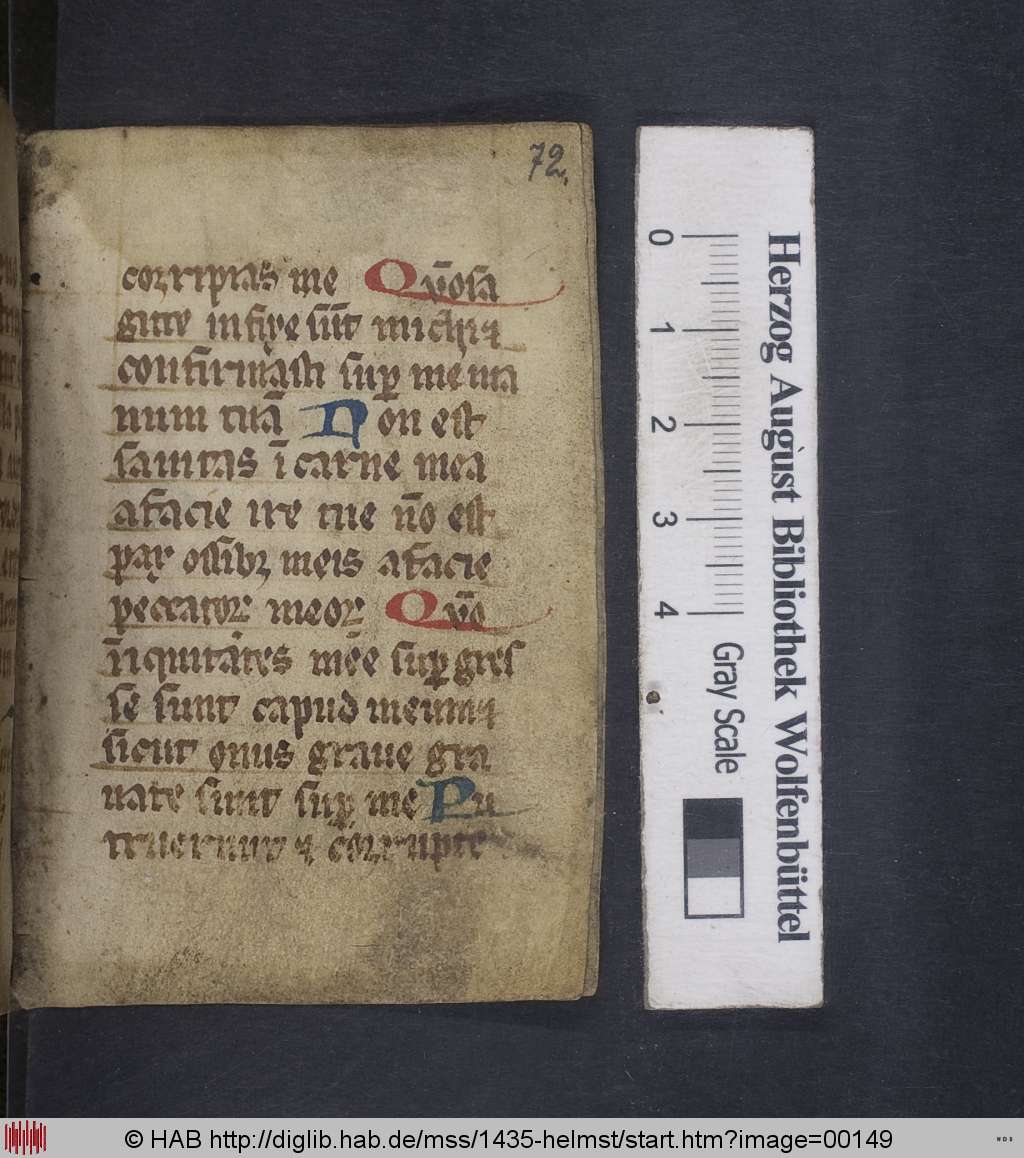 72.
corripias me Qūosa
gitte infixe sūt michi ⁊
confirmasti suꝑ me ma
num tuā Non est
sanitas ī carne mea
afacie ire tue nō est
pax ossibꝫ meis afacie
peccatoꝝ meoꝝ Qūo
īiquitates mee suꝑgres
se sunt capud meum ⁊
sicut onus graue gra
uate sunt suꝑ me Pu
truerunt ⁊ corrupte
0 1 2 3 4
Gray Scale
Herzog August Bibliothek Wolfenbüttel
© HAB http://diglib.hab.de/mss/1435-helmst/start.htm?image=00149